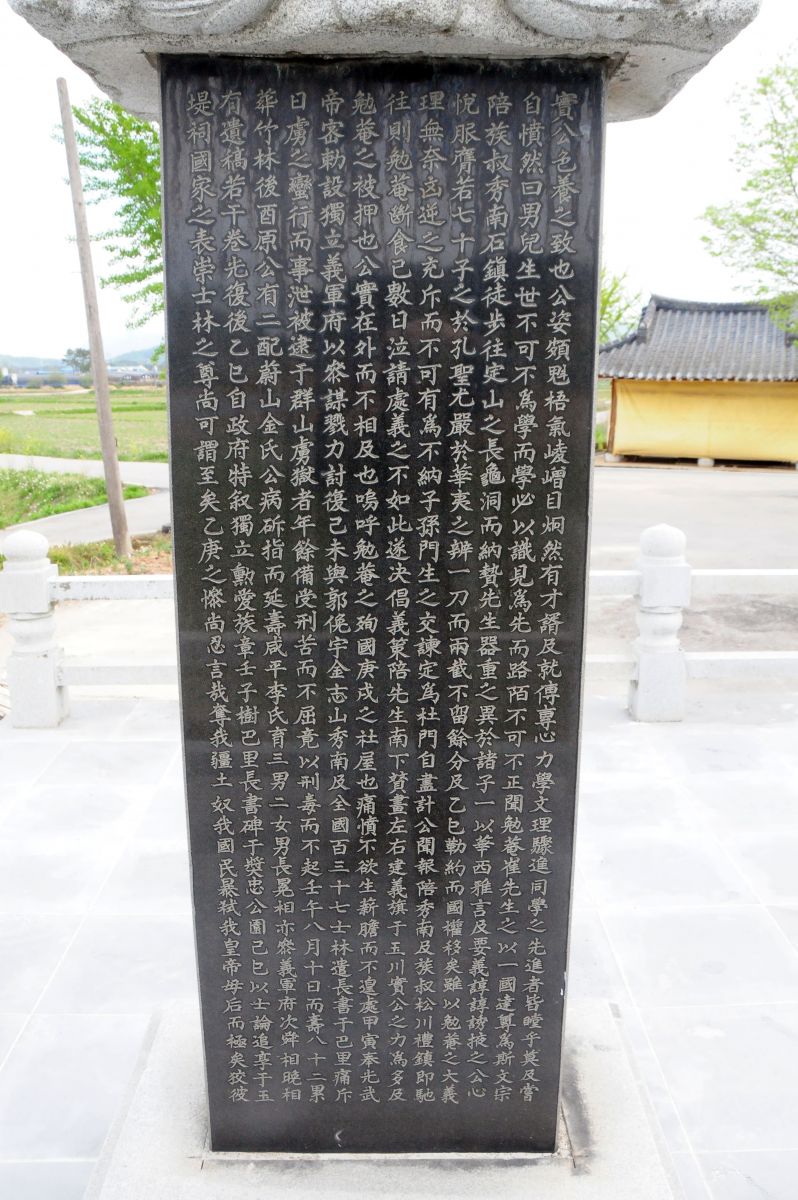 實公色養之致也公姿頗魁梧氣崚嶒目炯然有才諝及就傅專心力學文理驟進同學之先進者皆瞠乎莫及嘗
自憤然曰男兒生世不可不爲學而學必以識見爲先而路陌不可不正聞勉菴崔先生之以一國達尊爲斯文宗
陪族叔秀南石鎭徒步往定山之長龜洞而納贄先生器重之異於諸子一以華西雅言及要義諄諄誘掖之公心
悅服膺若七十子之於孔聖尤嚴於華夷之辨一刀而兩截不留餘分及乙巳勒約而國權移矣雖以勉菴之大義
理無奈凶逆之充斥而不可有爲不納子孫門生之交諫定爲杜門自盡計公聞報陪秀南及族叔松川禮鎭即馳
往則勉菴斷食已數日泣請處義之不如此遂决倡義策陪先生南下贊畫左右建義旗于玉川實公之力爲多及
勉菴之被押也公實在外而不相及也嗚呼勉菴之殉國庚戌之社屋也痛憤不欲生薪膽而不遑處甲寅奉光武
帝密勅設獨立義軍府以參謀戮力討復己未與郭俛宇金志山秀南及全國百三十七士林遣長書于巴里痛斥
日虜之蠻行而事泄被逮于群山虜獄者年餘備受刑苦而不屈竟以刑毒而不起壬午八月十日而壽八十二累
葬竹林後酉原公有二配蔚山金氏公病斫指而延壽咸平李氏育三男二女男長晃相亦參義軍府次舜相晚相
有遺稿若干卷先復後乙巳自政府特叙獨立勳愛族章壬子樹巴里長書碑于奬忠公園己巳以士論追享于玉
堤祠國家之表崇士林之尊尚可謂至矣乙庚之慘尚忍言哉奪我疆土奴我國民暴弑我皇帝母后而極矣狡彼